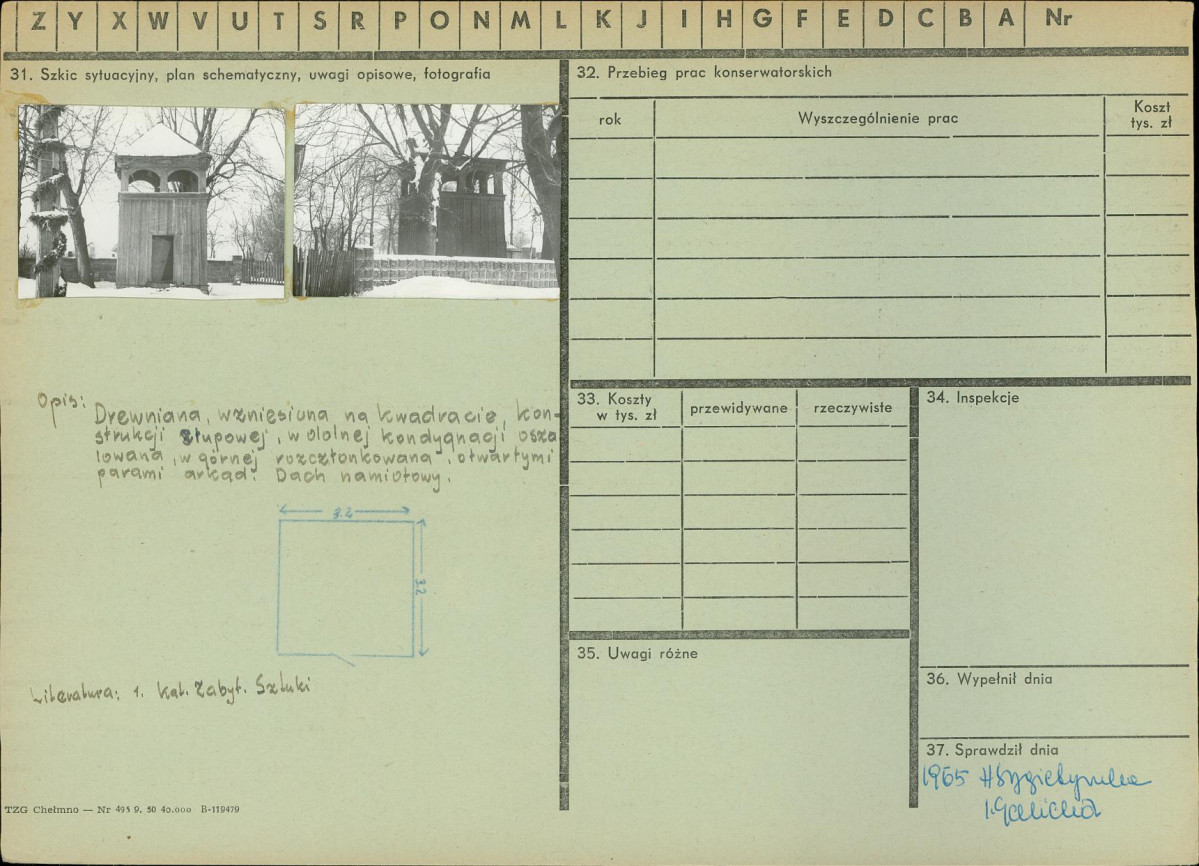 Z Y X W V U T S R P O N M L K J I H G F E D C B A Nr
31. Szkic sytuacyjny, plan schematyczny, uwagi opisowe, fotografia
Opis: Drewniana, wzniesiona na kwadracie, kon-
strukcji słupowej, w dolnej kondygnacji osza
lowana, w górnej rozczłonkowana, otwartymi
parami arkad. Dach namiotowy.
3.2
3.2
Literatura: 1. Kat. Zabyt. Sztuki
TZG Chełmno — Nr 495 9. 50 40.000 B-119479
32. Przebieg prac konserwatorskich
rok
Wyszczególnienie prac
Koszt
tys. zł
33. Koszty
w tys. zł
przewidywane
rzeczywiste
34. Inspekcje
35. Uwagi różne
36. Wypełnił dnia
37. Sprawdził dnia
1965
I. Galicka